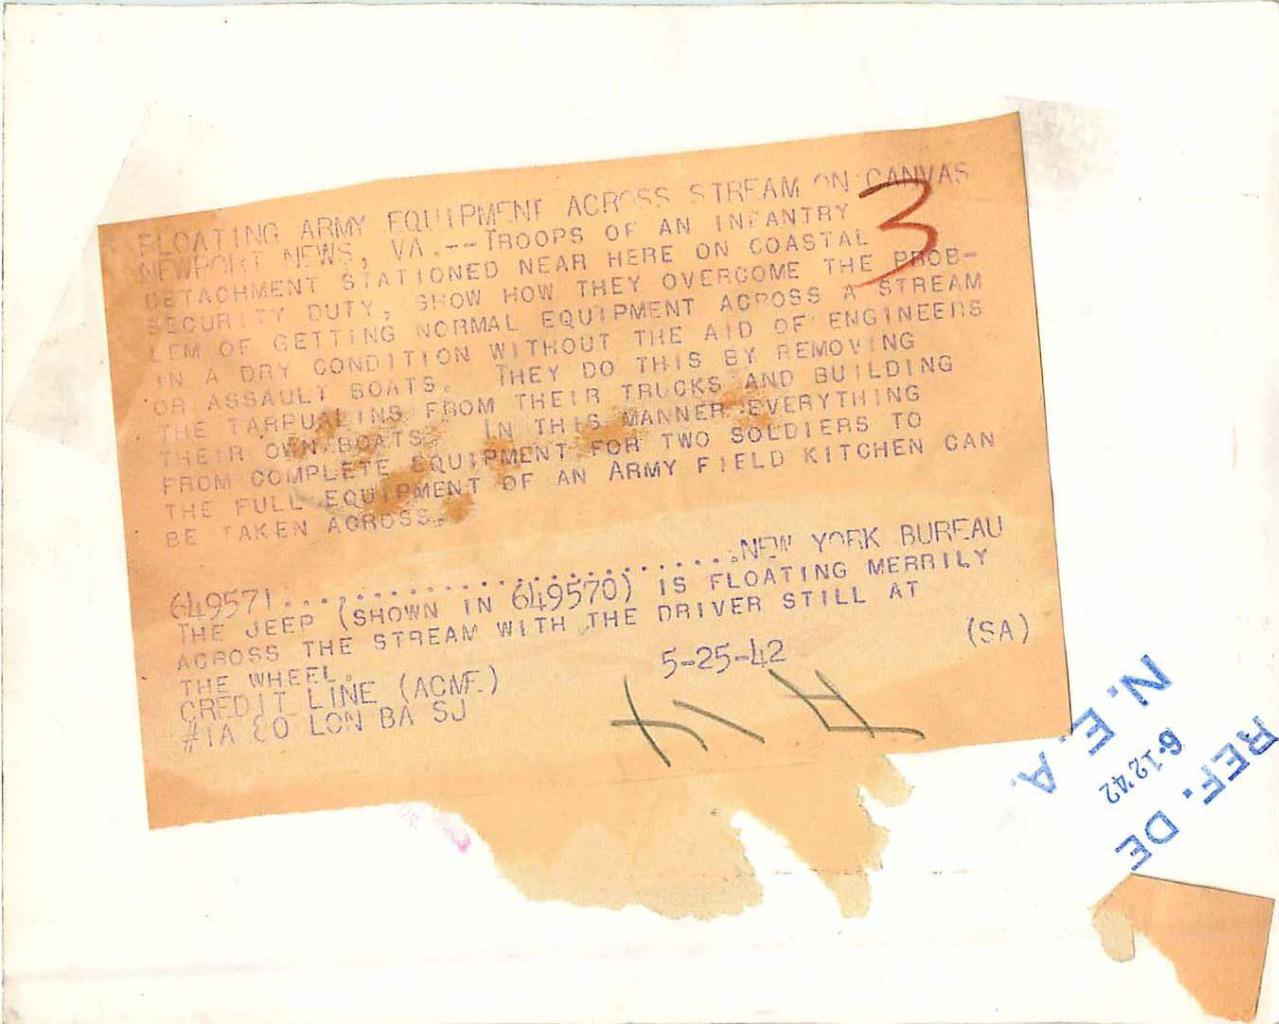 FLOATING ARMY EQUIPMENT ACROSS STREAM ON CANVAS
3
NEWPORT NEWS, VA.--TROOPS OF AN INFANTRY
DETACHMENT STATIONED NEAR HERE ON COASTAL
SECURITY DUTY, SHOW HOW THEY OVERCOME THE PROB-
LEM OF GETTING NORMAL EQUIPMENT ACROSS A STREAM
IN A DRY CONDITION WITHOUT THE AID OF ENGINEERS
OR ASSAULT BOATS. THEY DO THIS BY REMOVING
THE TARPUALINS FROM THEIR TRUCKS AND BUILDING
THEIR OWN BOATS. IN THIS MANNER EVERYTHING
FROM COMPLETE EQUIPMENT FOR TWO SOLDIERS TO
THE FULL EQUIPMENT OF AN ARMY FIELD KITCHEN CAN
BE TAKEN ACROSS.
649571...............................NEW YORK BUREAU
THE JEEP (SHOWN IN 649570) IS FLOATING MERRILY
ACROSS THE STREAM WITH THE DRIVER STILL AT
THE WHEEL.
CREDIT LINE (ACME) 5-25-42 (SA)
#1A CO LON BA SJ
N. E. A.
6-12'42
REF. DE